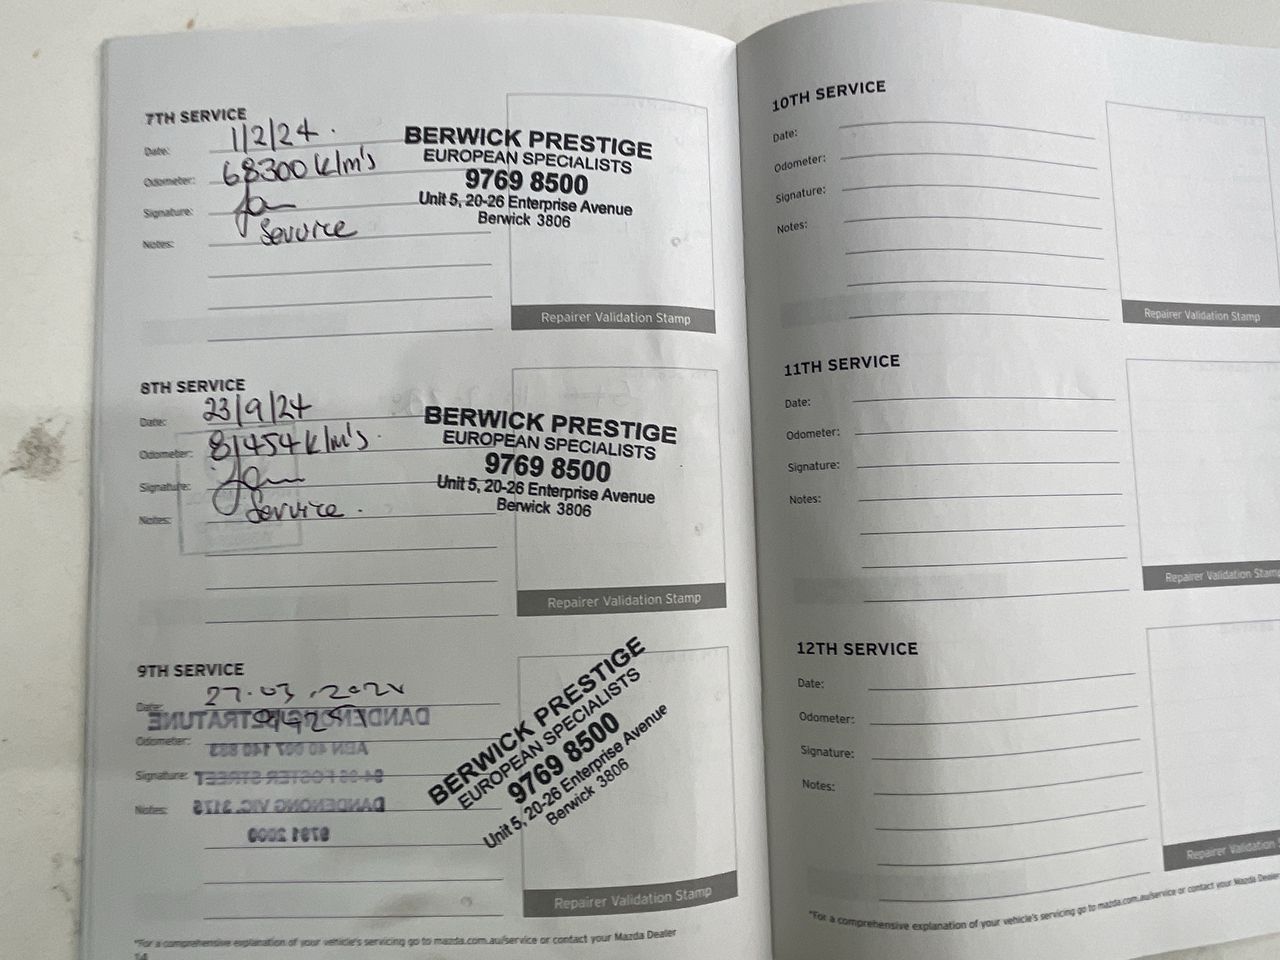 7TH SERVICE
Date: 1/2/24.
Odometer: 68300 K/m's
Signature:
Notes: Service
BERWICK PRESTIGE
EUROPEAN SPECIALISTS
9769 8500
Unit 5, 20-26 Enterprise Avenue
Berwick 3806
Repairer Validation Stamp
8TH SERVICE
Date: 23/9/24
Odometer: 81454 K/m's.
Signature:
Notes: Service.
BERWICK PRESTIGE
EUROPEAN SPECIALISTS
9769 8500
Unit 5, 20-26 Enterprise Avenue
Berwick 3806
Repairer Validation Stamp
9TH SERVICE
Date:
Odometer:
Signature:
Notes:
BERWICK PRESTIGE
EUROPEAN SPECIALISTS
9769 8500
Unit 5, 20-26 Enterprise Avenue
Berwick 3806
Repairer Validation Stamp
*For a comprehensive explanation of your vehicle's servicing go to mazda.com.au/service or contact your Mazda Dealer
14
10TH SERVICE
Date:
Odometer:
Signature:
Notes:
Repairer Validation Stamp
11TH SERVICE
Date:
Odometer:
Signature:
Notes:
Repairer Validation Stamp
12TH SERVICE
Date:
Odometer:
Signature:
Notes:
Repairer Validation
*For a comprehensive explanation of your vehicle's servicing go to mazda.com.au/service or contact your Mazda Dealer